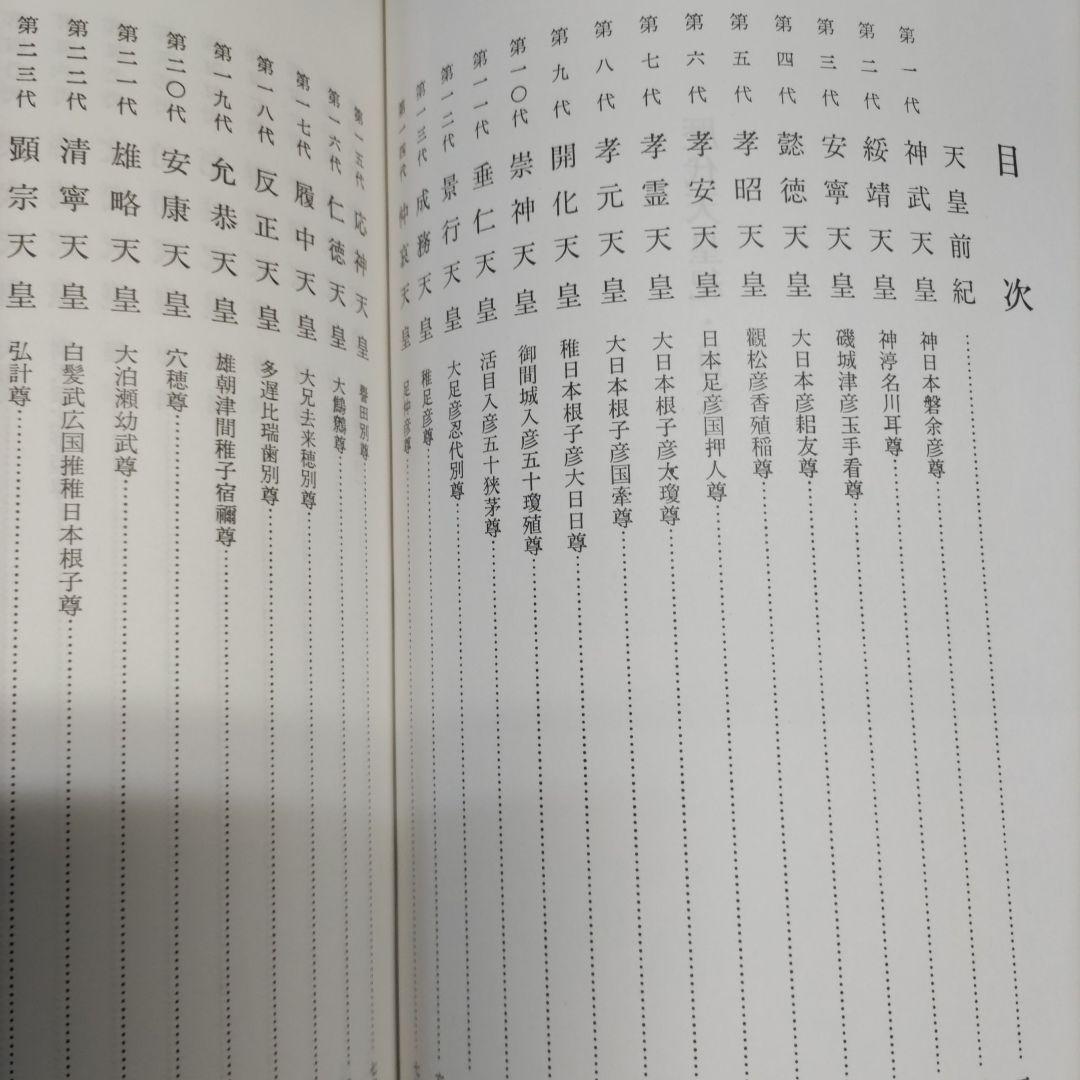 目次
天皇前紀
第一代 神武天皇 神日本磐余彦尊
第二代 綏靖天皇 神渟名川耳尊
第三代 安寧天皇 磯城津彦玉手看尊
第四代 懿徳天皇 大日本彦耜友尊
第五代 孝昭天皇 観松彦香殖稲尊
第六代 孝安天皇 日本足彦国押人尊
第七代 孝霊天皇 大日本根子彦太瓊尊
第八代 孝元天皇 大日本根子彦国牽尊
第九代 開化天皇 稚日本根子彦大日日尊
第一〇代 崇神天皇 御間城入彦五十瓊殖尊
第一一代 垂仁天皇 活目入彦五十狭茅尊
第一二代 景行天皇 大足彦忍代別尊
第一三代 成務天皇 稚足彦尊
第一四代 仲哀天皇 足仲彦尊
第一五代 応神天皇 誉田別尊
第一六代 仁徳天皇 大鷦鷯尊
第一七代 履中天皇 大兄去来穂別尊
第一八代 反正天皇 多遅比瑞歯別尊
第一九代 允恭天皇 雄朝津間稚子宿禰尊
第二〇代 安康天皇 穴穂尊
第二一代 雄略天皇 大泊瀬幼武尊
第二二代 清寧天皇 白髪武広国推稚日本根子尊
第二三代 顕宗天皇 弘計尊